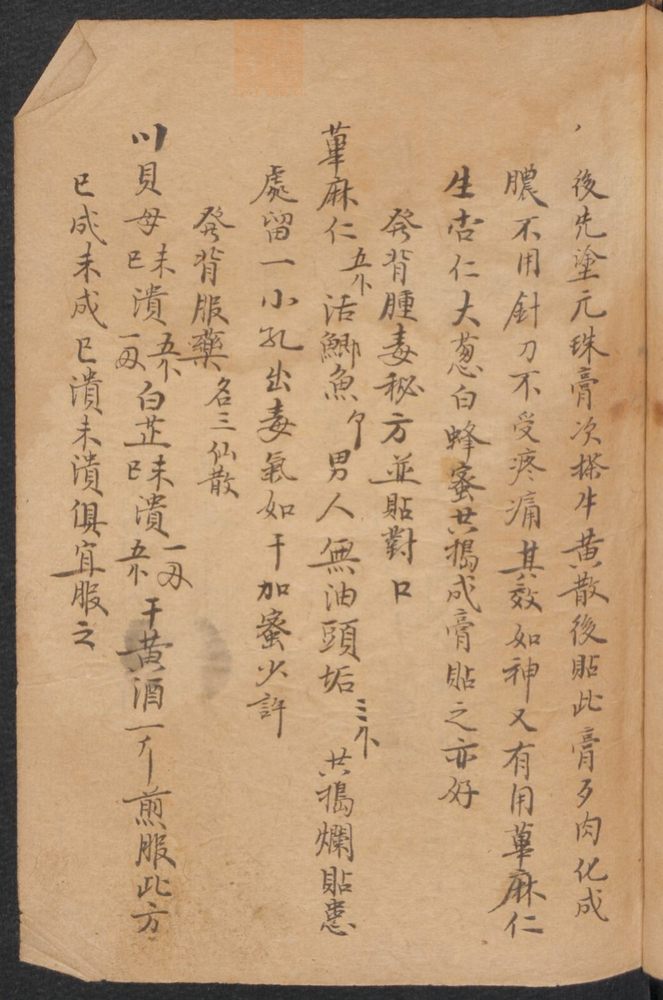 後先塗元珠膏次搽牛黃散後貼此膏歹肉化成
膿不用針刀不受疼痛其效如神又有用萆麻仁
生杏仁大蔥白蜂蜜共搗成膏貼之亦好
發背腫毒秘方並貼對口
萆麻仁 五个 活鯽魚 男人無油頭垢 三个 共搗爛貼患
處留一小孔出毒氣如干加蜜少許
發背服藥 名三仙散
川貝母 已潰一両 未潰五不 白芷 已潰五不 未潰一両 干黃酒一斤煎服此方
已成未成已潰未潰俱宜服之